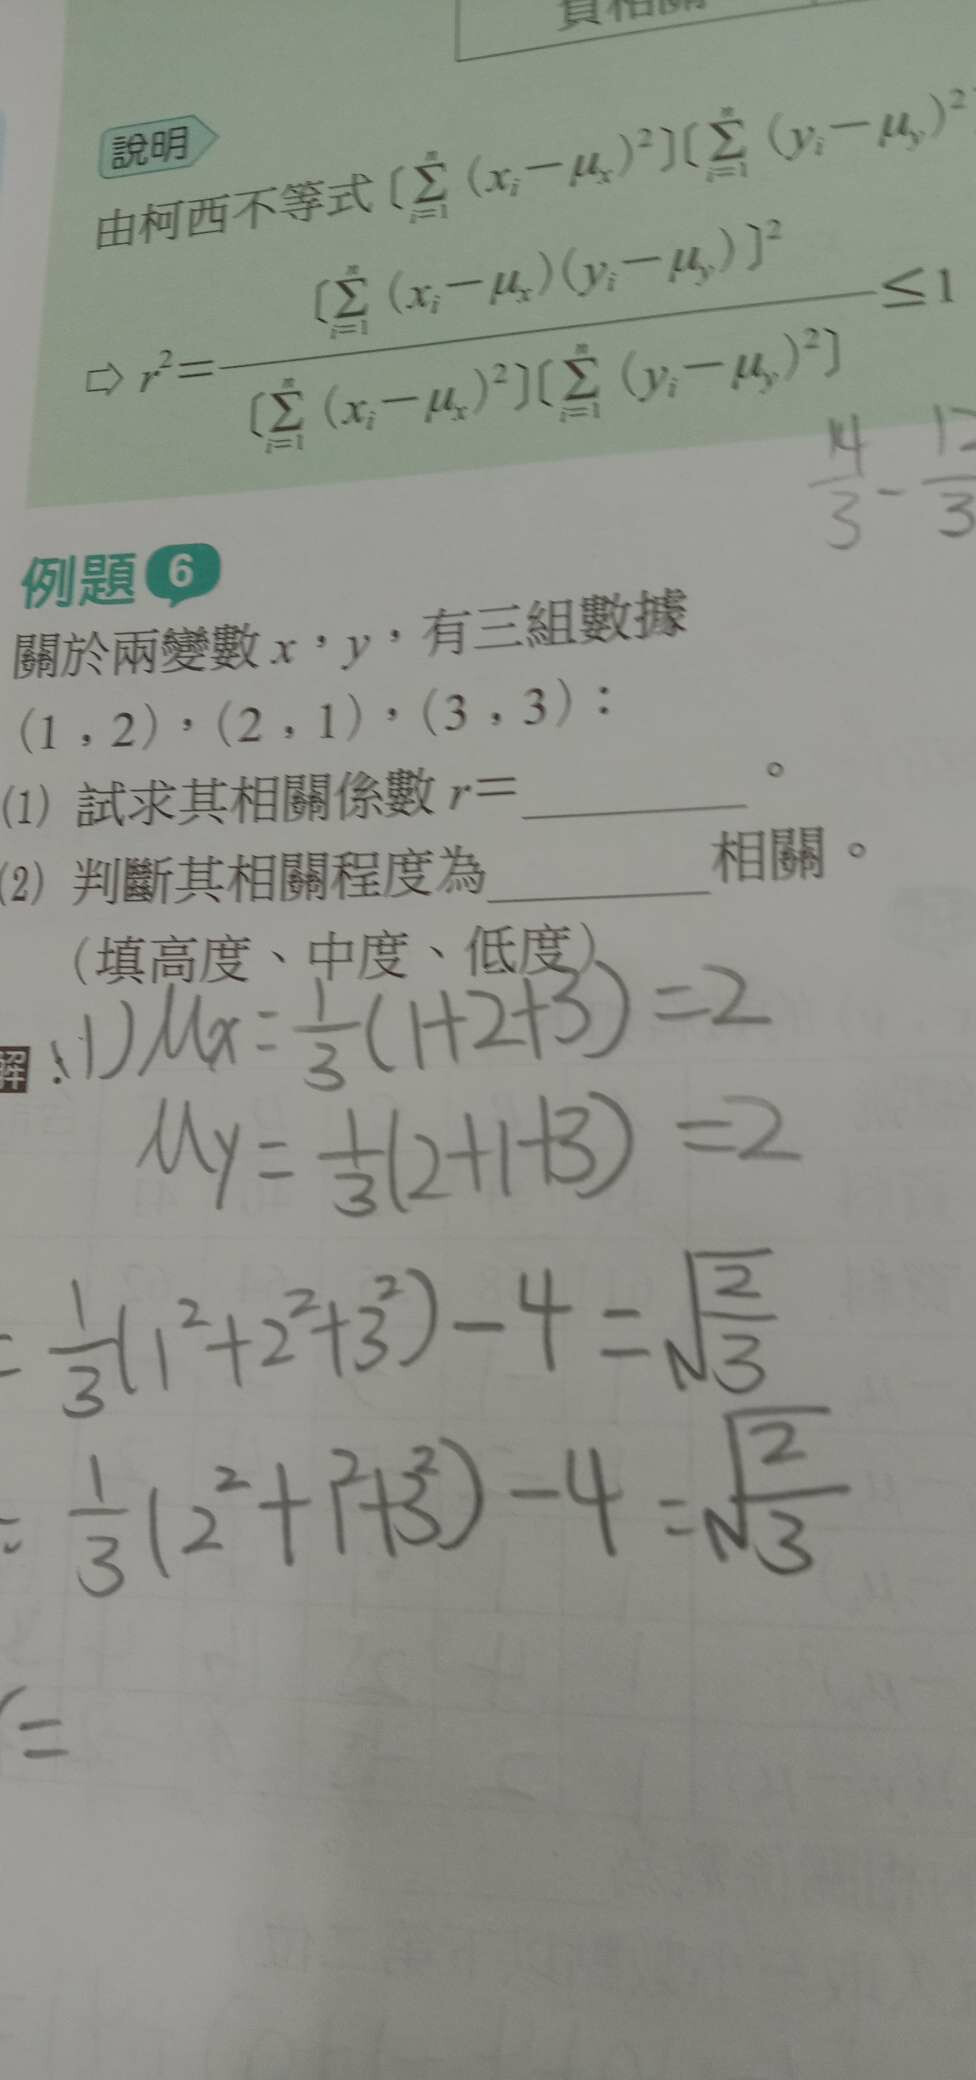 負相關
說明
由柯西不等式 [Σⁿᵢ₌₁ (xᵢ−μₓ)²][Σⁿᵢ₌₁ (yᵢ−μᵧ)²
⇨ r²= [Σⁿᵢ₌₁ (xᵢ−μₓ)(yᵢ−μᵧ)]² / [Σⁿᵢ₌₁ (xᵢ−μₓ)²][Σⁿᵢ₌₁ (yᵢ−μᵧ)²] ≤1
14/3 - 12/3
例題 6
關於兩變數 x,y,有三組數據
(1,2),(2,1),(3,3):
(1) 試求其相關係數 r=________。
(2) 判斷其相關程度為________相關。
(填高度、中度、低度)
解:(1) μx = 1/3 (1+2+3) = 2
μy = 1/3 (2+1+3) = 2
= 1/3 (1²+2²+3²) - 4 = √(2/3)
= 1/3 (2²+1²+3²) - 4 = √(2/3)
=